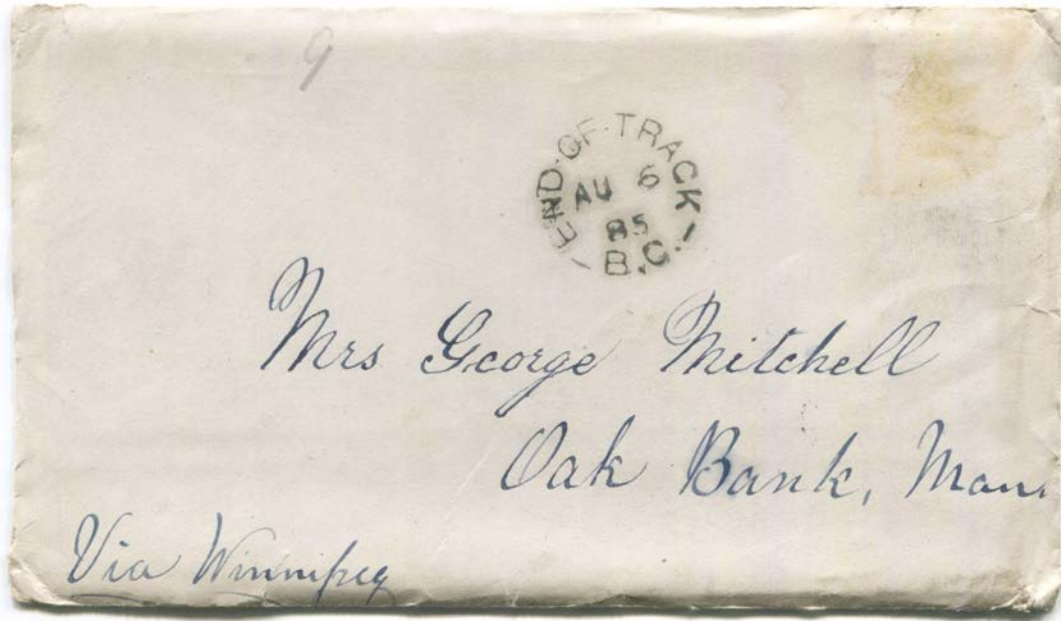 9
END·OF·TRACK
AU 6
85
B.C.
Mrs George Mitchell
Oak Bank, Man.
Via Winnipeg